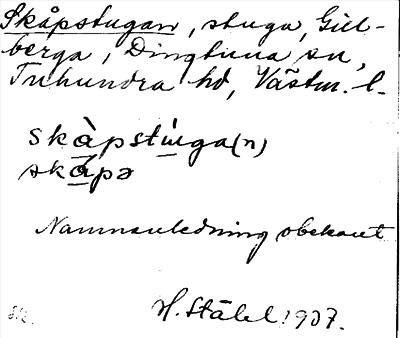 Skåpstugan, stuga, Gill-
berga, Dingtuna sn,
Tuhundra hd, Västm. l.
skàpstùga(n)
skápə
Namnanledning obekant
H. Ståhl 1937.